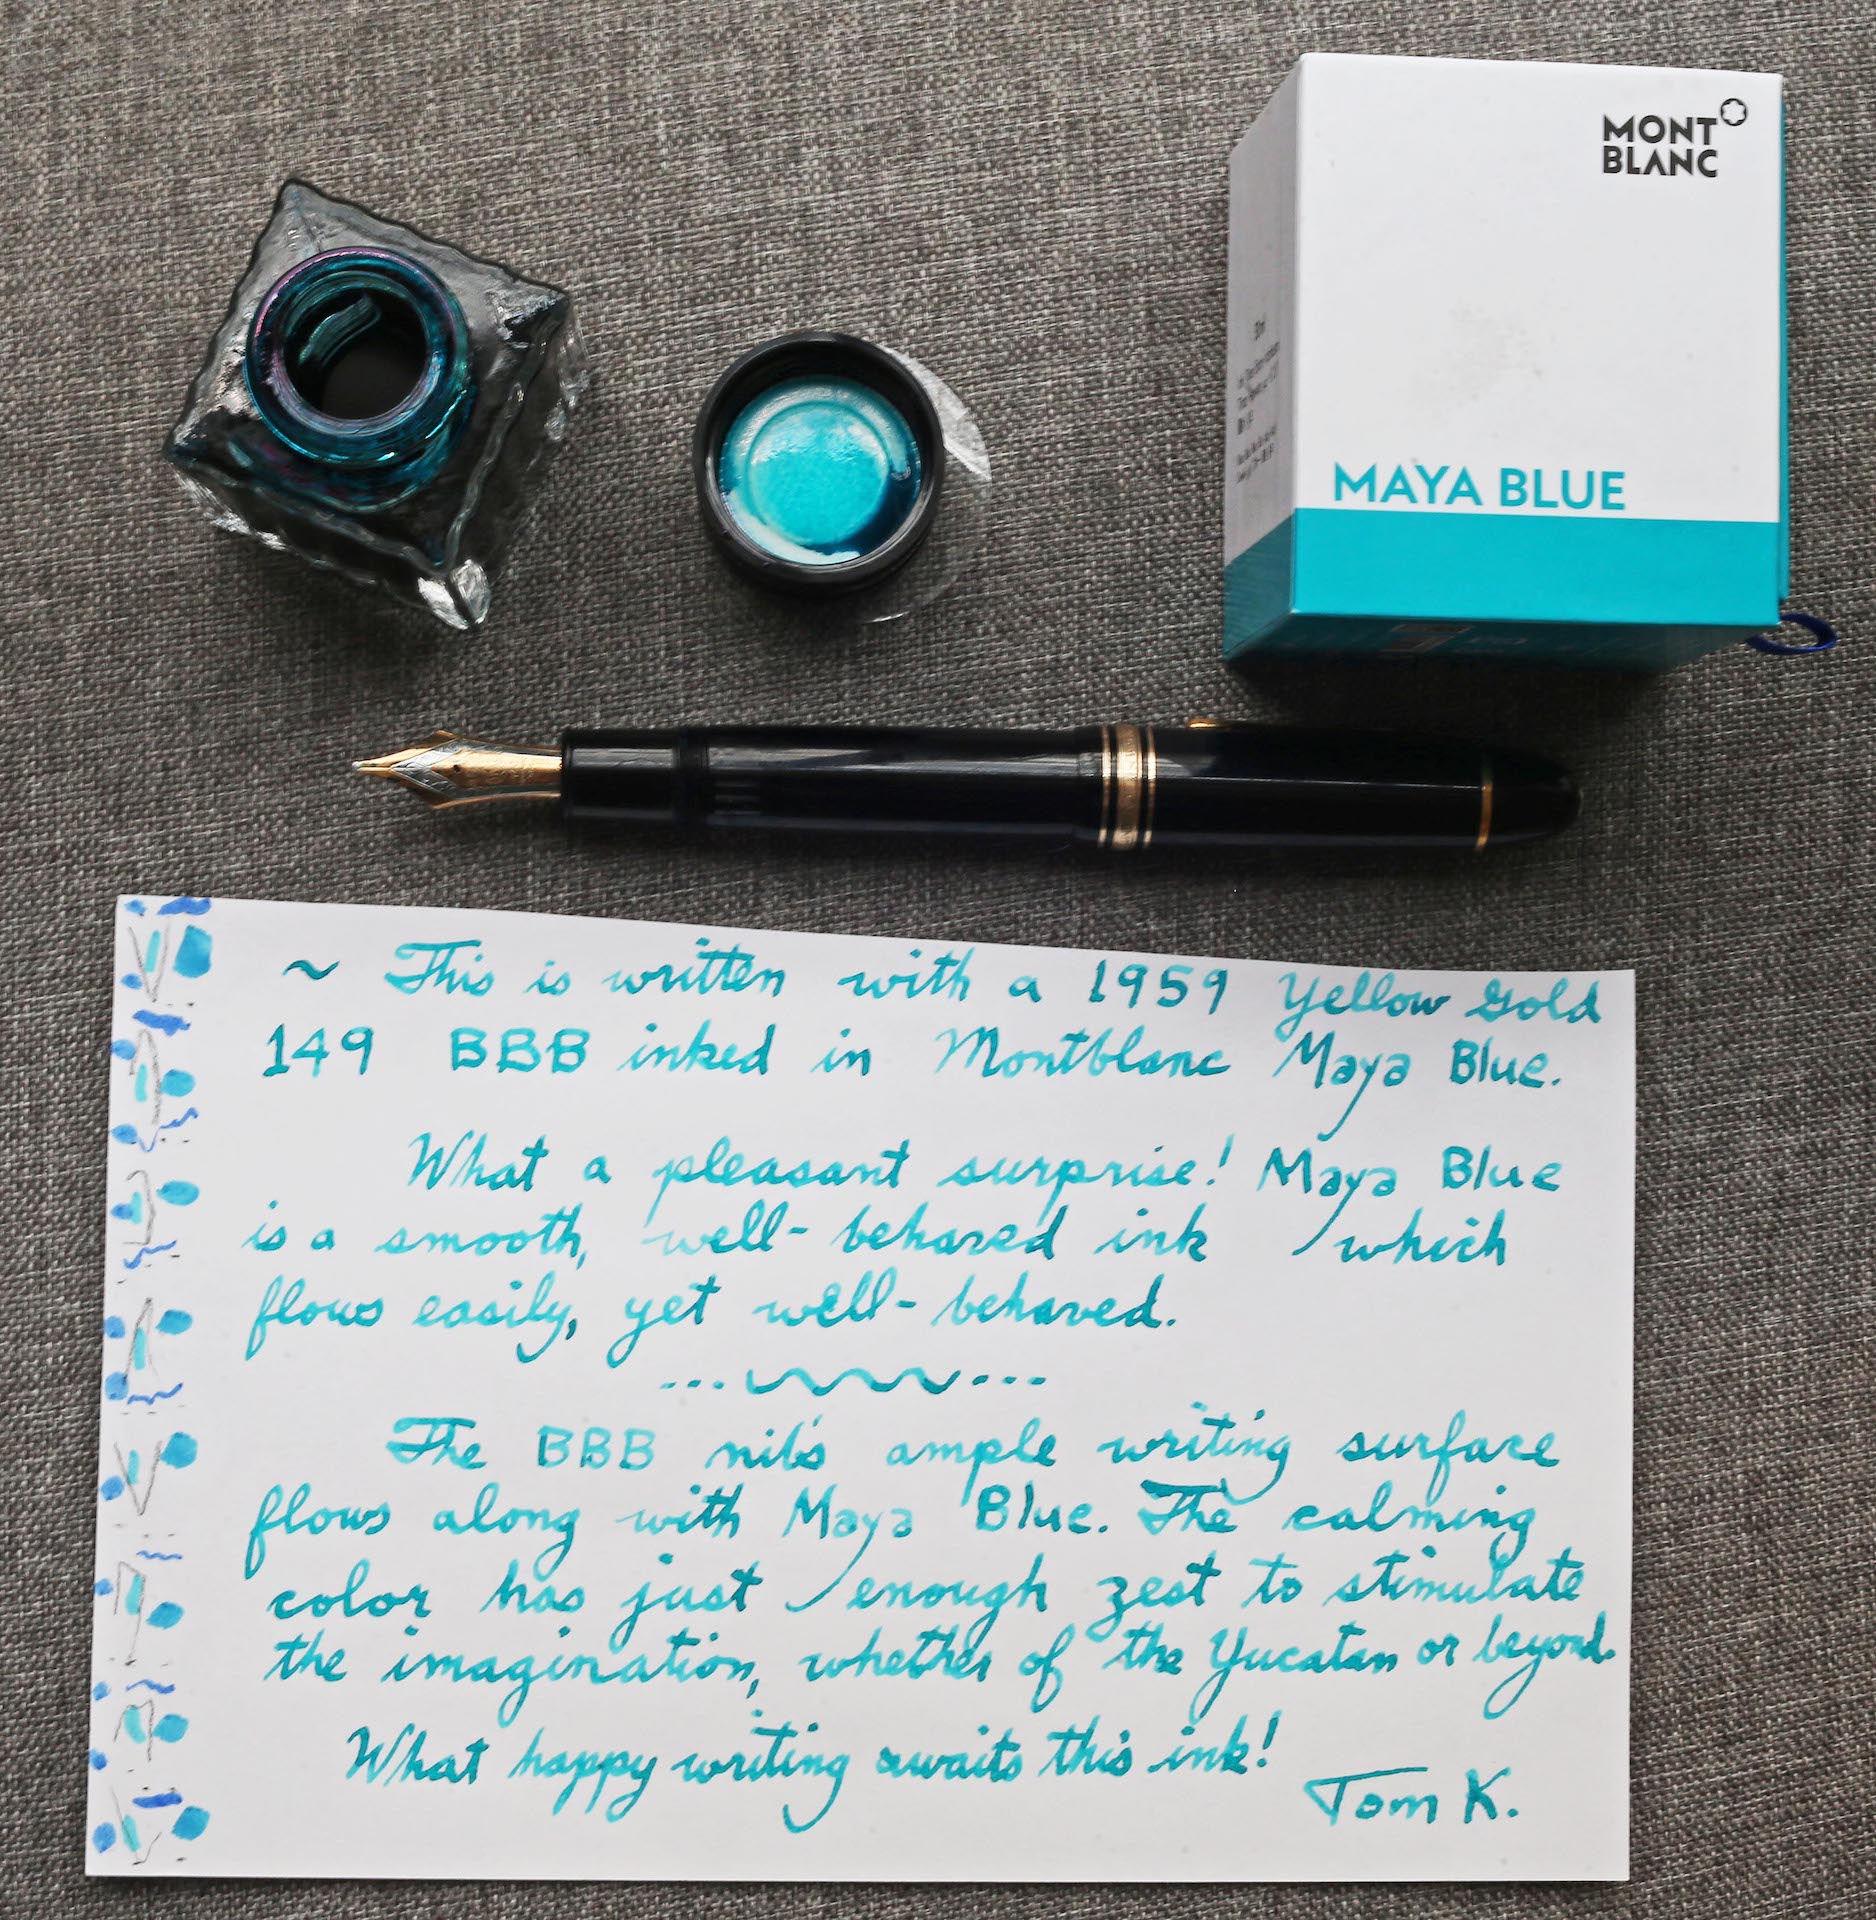 MONT
BLANC
MAYA BLUE
~ This is written with a 1959 Yellow Gold
149 BBB inked in Montblanc Maya Blue.
What a pleasant surprise! Maya Blue
is a smooth, well-behaved ink which
flows easily, yet well-behaved.
The BBB nib's ample writing surface
flows along with Maya Blue. The calming
color has just enough zest to stimulate
the imagination, whether of the Yucatan or beyond.
What happy writing awaits this ink!
Tom K.